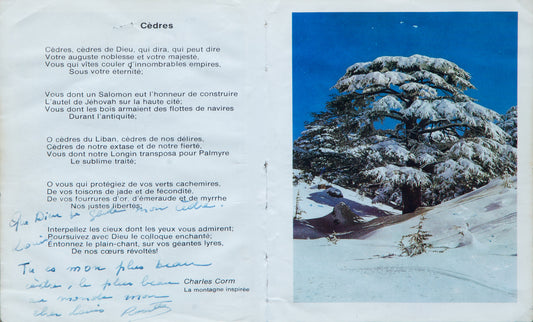 Cèdres
Cèdres, cèdres de Dieu, qui dira, qui peut dire
Votre auguste noblesse et votre majesté,
Vous qui vîtes couler d'innombrables empires,
Sous votre éternité;
Vous dont un Salomon eut l'honneur de construire
L'autel de Jéhovah sur la haute cité;
Vous dont les bois armaient des flottes de navires
Durant l'antiquité;
O cèdres du Liban, cèdres de nos délires,
Cèdres de notre extase et de notre fierté,
Vous dont notre Longin transposa pour Palmyre
Le sublime traité;
O vous qui protégiez de vos verts cachemires,
De vos toisons de jade et de fécondité,
De vos fourrures d'or, d'émeraude et de myrrhe
Nos justes libertés;
Que Dieu te garde mon cèdre.
Louis
Interpellez les cieux dont les yeux vous admirent;
Poursuivez avec Dieu le colloque enchanté;
Entonnez le plain-chant, sur vos géantes lyres,
De nos cœurs révoltés!
Tu es mon plus beau
cèdre, le plus beau
au monde mon
cher Louis
Charles Corm
La montagne inspirée